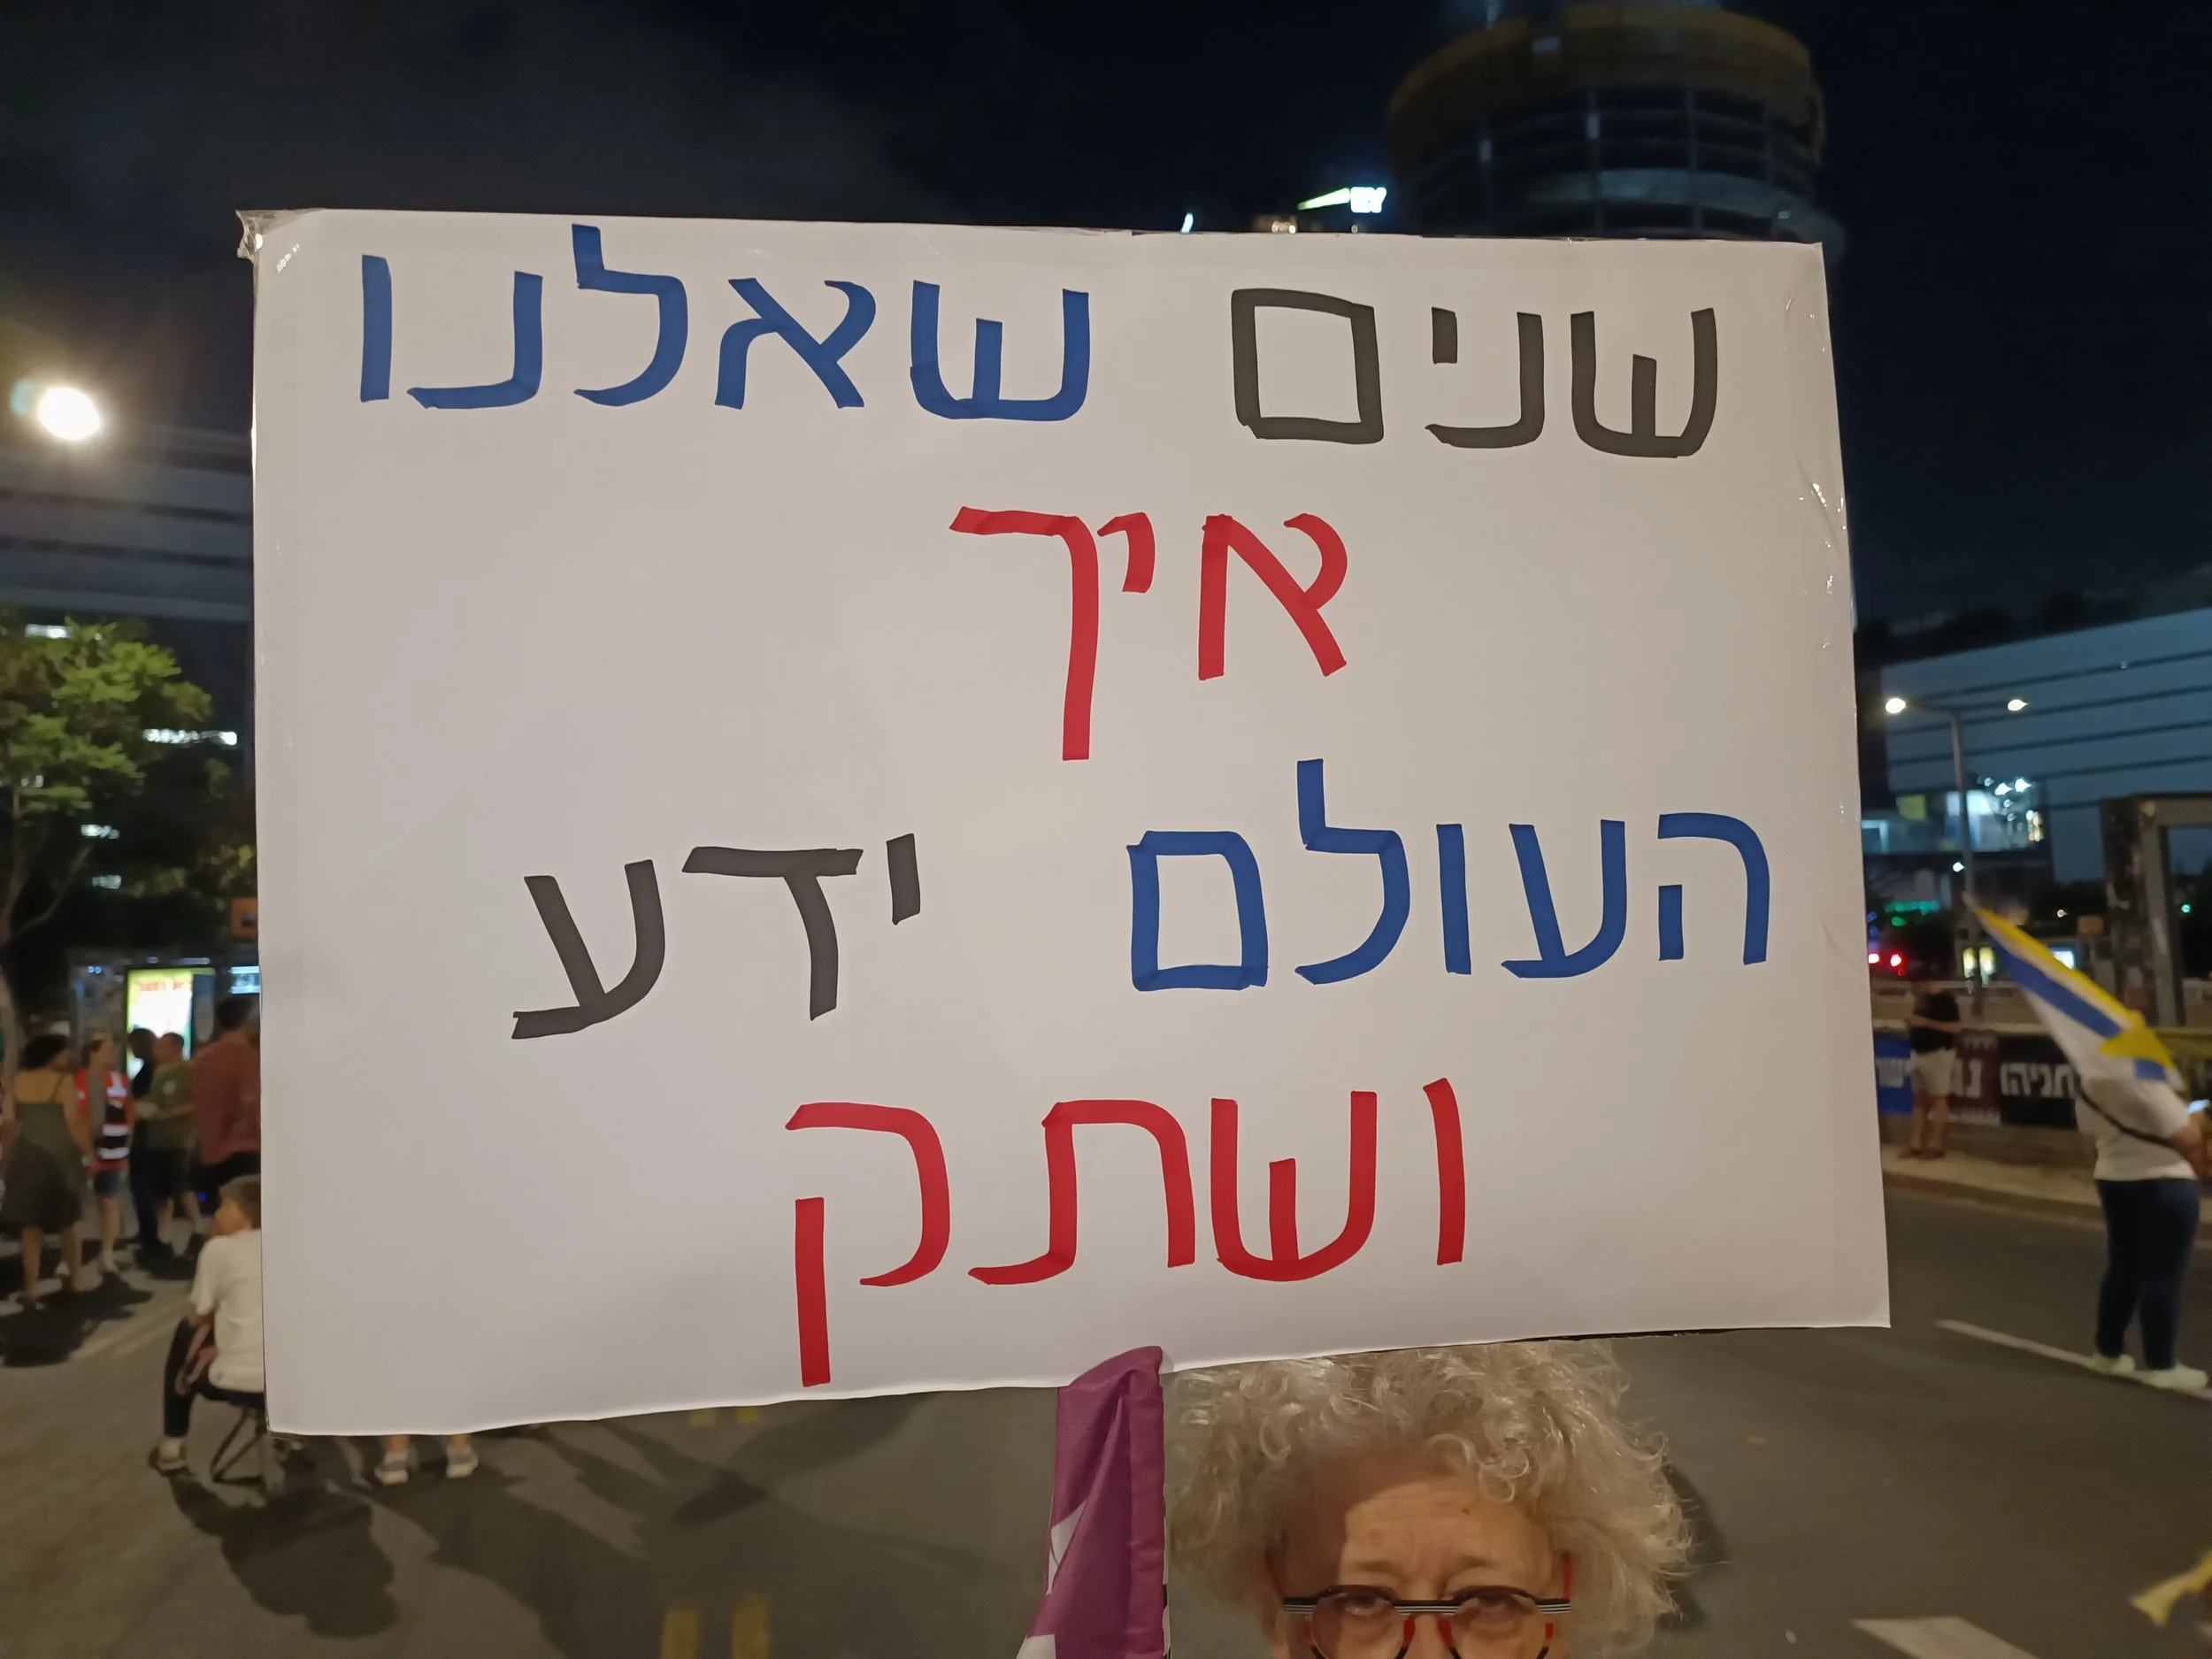 שנים שאלנו
איך
העולם ידע
ושתק